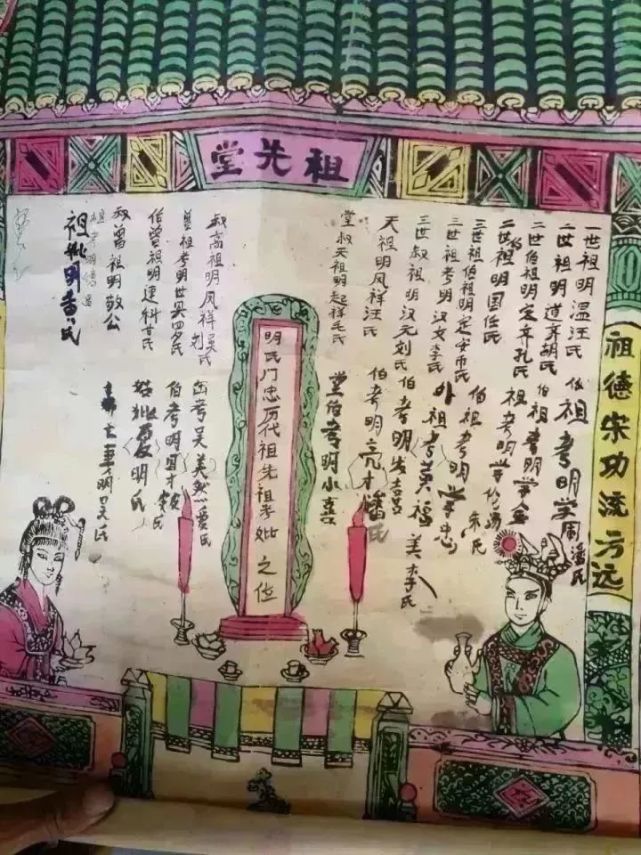 祖先堂
祖德宗功流芳远
一世祖明温汪氏
二世祖明道齐胡氏
二世伯祖明定齐孔氏
二世祖明国任氏
三世祖伯祖明定安币氏
三世祖考明汉文李氏
三世叔祖明汉元刘氏
天祖明凤祥汪氏
堂叔天祖明起祥毛氏
祖考明学周潘氏
伯祖考明学金
祖考明学伦汤
伯祖考明学中朱氏
外祖考黄福美李氏
伯考明发喜
伯考明亮才潘氏
堂伯考明小喜
明氏门忠历代祖先祖考妣之位
叔高祖明凤祥吴刘
曾祖考明世吴罗氏
伯曾祖明连科甘氏
叔曾祖明敬公
岳考吴美然爱氏
伯考明
姑妣明氏